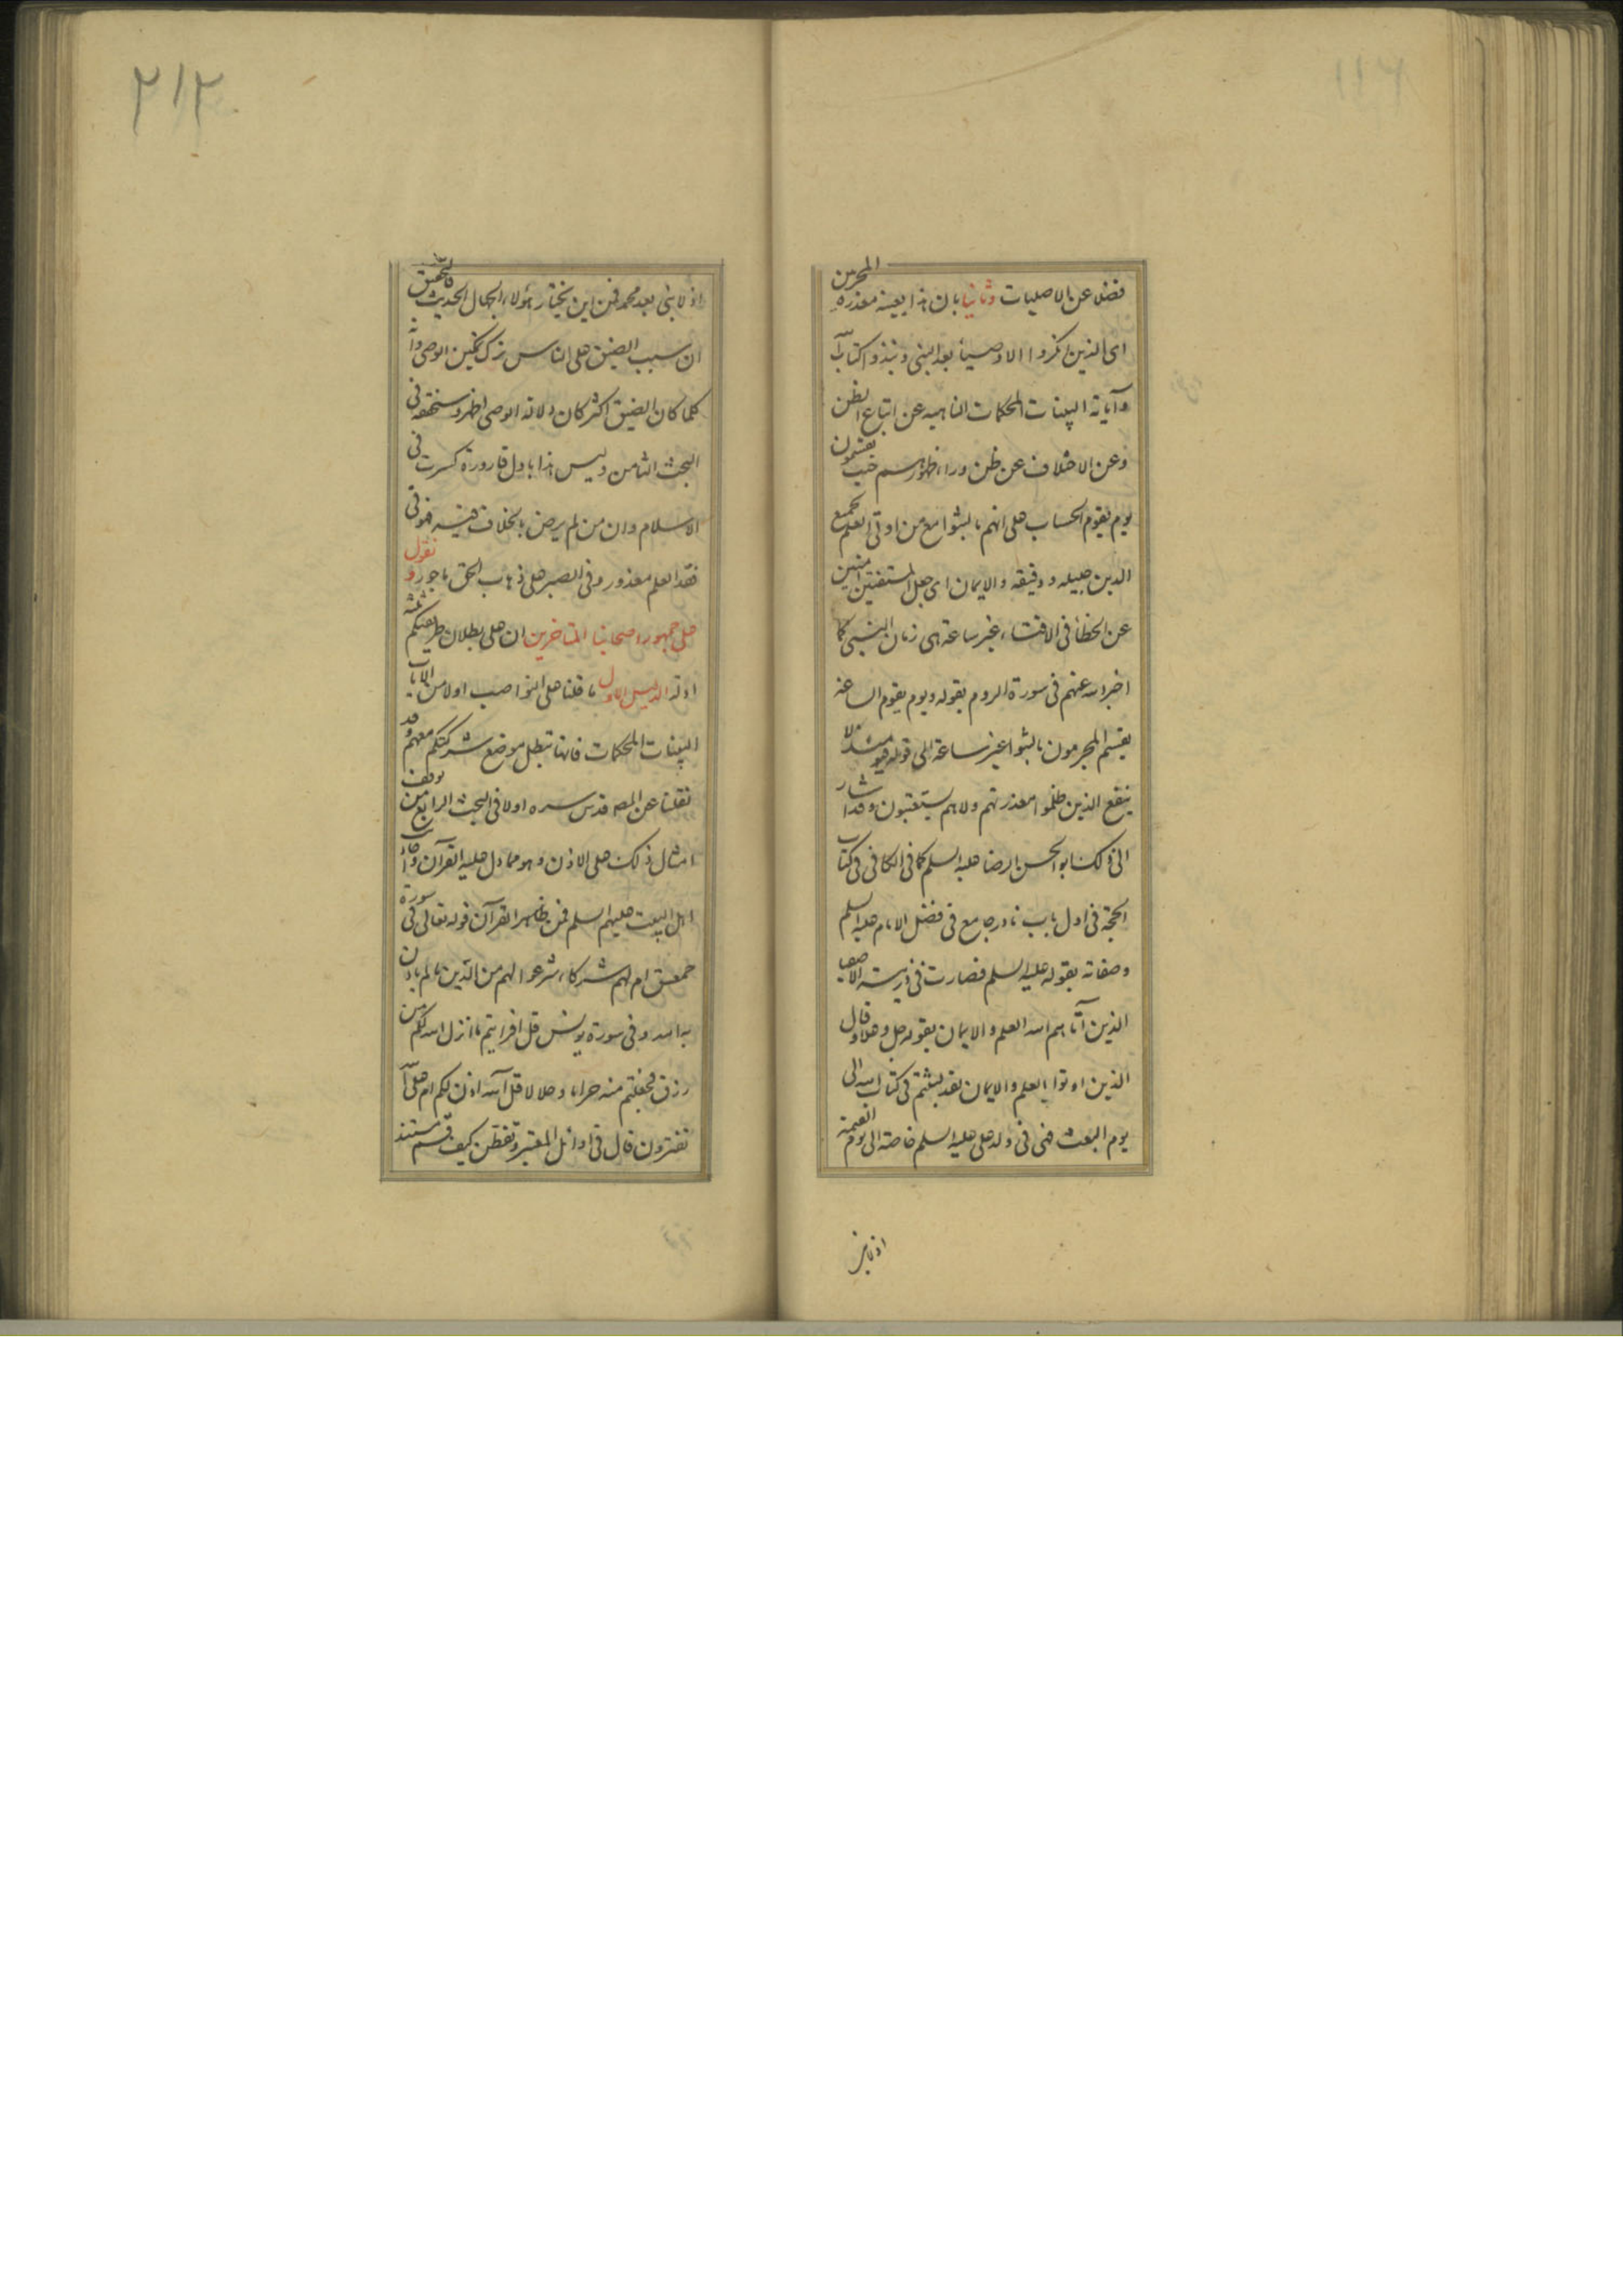 فضلا عن الاصليات وثانيا بان هذا بعينه معذرة المجرمين
اى الذين انكروا الاوصياء بعد النبى ونبذوا كتاب الله
وآياته البينات المحكمات الناهيه عن اتباع الظن
وعن الاختلاف عن ظن وراء ظهورهم حيث يقسمون
يوم يقوم الحساب على انهم ما لبثوا مع من اوتى العلم بجميع
الدين جليله ودقيقه والايمان اى جعل المستفتين امنين
عن الخطأ فى الافتاء غير ساعة هى زمان النبى كما
اخبر الله عنهم فى سورة الروم بقوله ويوم يقوم الساعة
يقسم المجرمون ما لبثوا غير ساعة الى قوله فيومئذ لا
ينفع الذين ظلموا معذرتهم ولا هم يستعتبون وقد اشار
الى ذلك ابو الحسن الرضا عليه السلم كما فى الكافى فى كتاب
الحجة فى اول باب نادر جامع فى فضل الامام عليه السلم
وصفاته بقوله عليه السلم فصارت فى ذريته الاصفيا
الذين آتاهم الله العلم والايمان بقوله جل وعلا وقال
الذين اوتوا العلم والايمان لقد لبثتم فى كتاب الله الى
يوم البعث فهى فى ولد على عليه السلم خاصة الى يوم القيمة
اذ لا نبى
٢١٢
اذ لا نبى بعد محمد فمن اين يختار هؤلاء الجهال الحديث فالتحقيق
ان سبب الضيق على الناس ترك تمكين الوصى وانه
كلما كان الضيق اكثر كان دلالة الوصى اظهر وسنحققه فى
البحث الثامن وليس هذا باول قارورة كسرت فى
الاسلام وان من لم يرض بالخلاف فيه فهو فى
فقد العلم معذور وفى الصبر على ذهاب الحق ماجور ونقول
على جمهور اصحابنا المتاخرين ان على بطلان طريقتكم ثمانية
ادلة الدليل الاول ما قلنا على النواصب اولا من الآيات
البينات المحكمات فانها تبطل موضع شركتكم معهم وقد
نقلنا عن المصه قدس سره اولا فى البحث الرابع من توقف
امثال ذلك على الاذن وهو مما دل عليه القرآن واحاديث
اهل البيت عليهم السلم فمن ظاهر القرآن قوله تعالى فى سورة
حمعسق ام لهم شركاء شرعوا لهم من الدين ما لم ياذن
به الله وفى سورة يونس قل افرايتم ما انزل الله لكم من
رزق فجعلتم منه حراما وحلالا قل آلله اذن لكم ام على الله
تفترون قال فى اوائل المعتبر وتفطن كيف قسم مستند